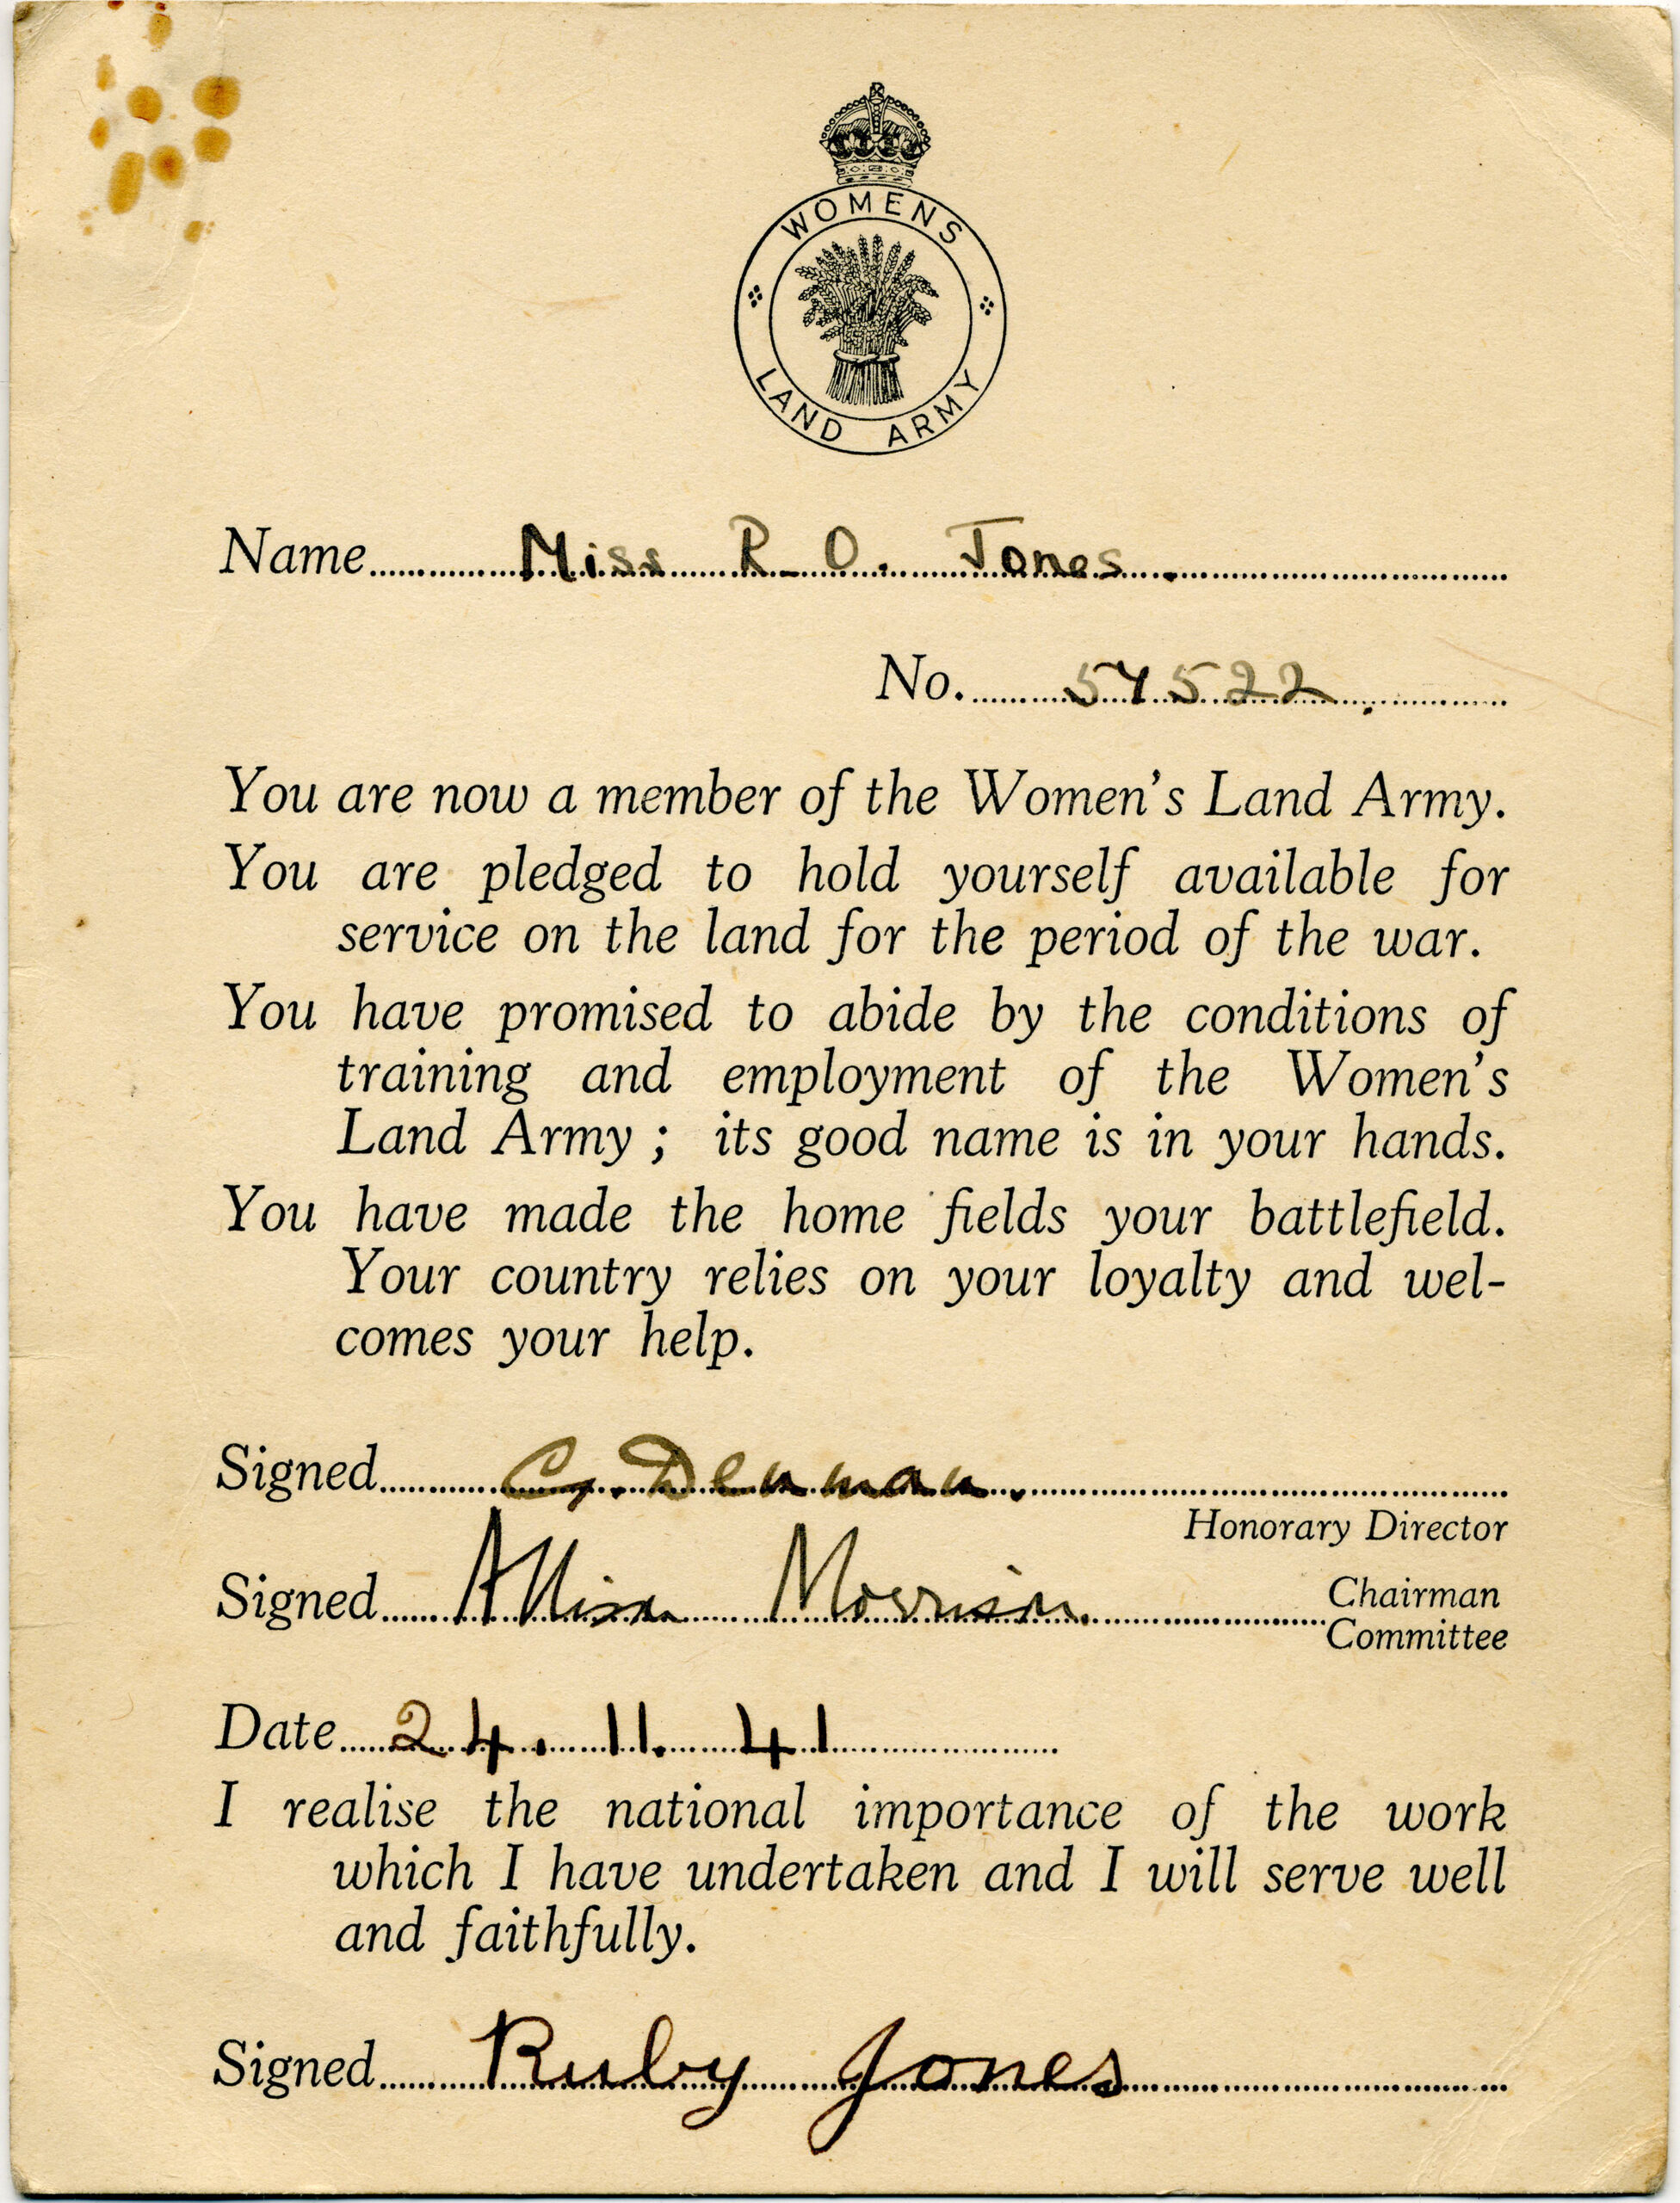 WOMENS
LAND ARMY
Name Miss R. O. Jones.
No. 57522.
You are now a member of the Women's Land Army.
You are pledged to hold yourself available for
service on the land for the period of the war.
You have promised to abide by the conditions of
training and employment of the Women's
Land Army ; its good name is in your hands.
You have made the home fields your battlefield.
Your country relies on your loyalty and wel-
comes your help.
Signed G. Denman.
Honorary Director
Signed Allison Morrison.
Chairman
Committee
Date 24. 11. 41
I realise the national importance of the work
which I have undertaken and I will serve well
and faithfully.
Signed Ruby Jones